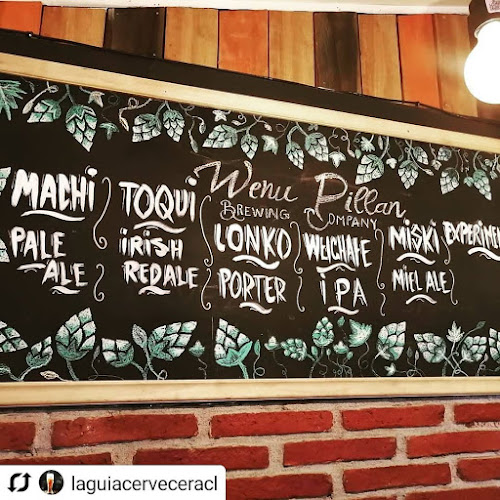 Wenu Pillan
BREWING COMPANY
MACHI
PALE
ALE
TOQUI
IRISH
RED ALE
LONKO
PORTER
WEICHAFE
IPA
MISKI
MIEL ALE
EXPERIME
laguiacerveceracl